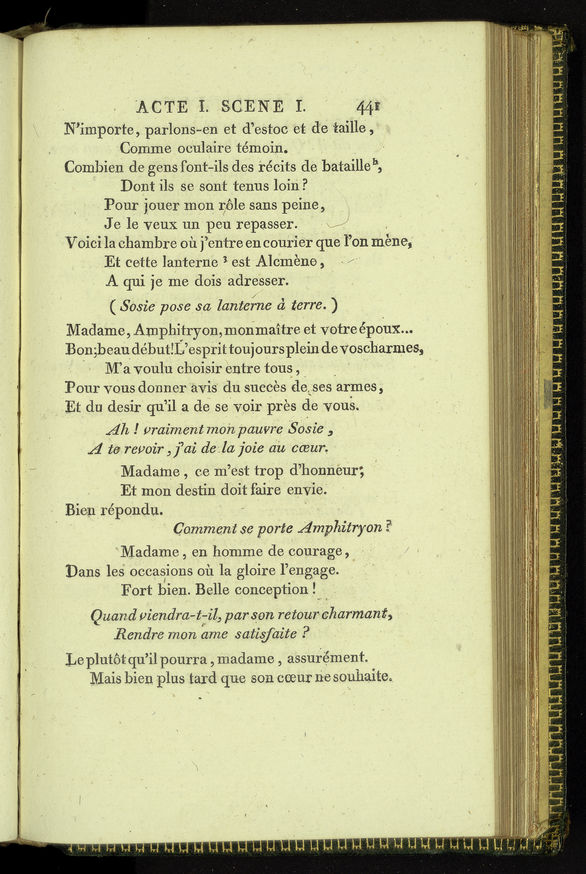 ACTE I. SCENE I. 441
N'importe, parlons-en et d'estoc et de taille,
Comme oculaire témoin.
Combien de gens font-ils des récits de bataille h,
Dont ils se sont tenus loin?
Pour jouer mon rôle sans peine,
Je le veux un peu repasser.
Voici la chambre où j'entre en courier que l'on mène,
Et cette lanterne ³ est Alcmène,
A qui je me dois adresser.
( Sosie pose sa lanterne à terre. )
Madame, Amphitryon, mon maître et votre époux...
Bon; beau début! L'esprit toujours plein de vos charmes,
M'a voulu choisir entre tous,
Pour vous donner avis du succès de ses armes,
Et du desir qu'il a de se voir près de vous.
Ah ! vraiment mon pauvre Sosie,
A te revoir, j'ai de la joie au cœur.
Madame, ce m'est trop d'honneur;
Et mon destin doit faire envie.
Bien répondu.
Comment se porte Amphitryon ?
Madame, en homme de courage,
Dans les occasions où la gloire l'engage.
Fort bien. Belle conception !
Quand viendra-t-il, par son retour charmant,
Rendre mon ame satisfaite ?
Le plutôt qu'il pourra, madame, assurément.
Mais bien plus tard que son cœur ne souhaite.